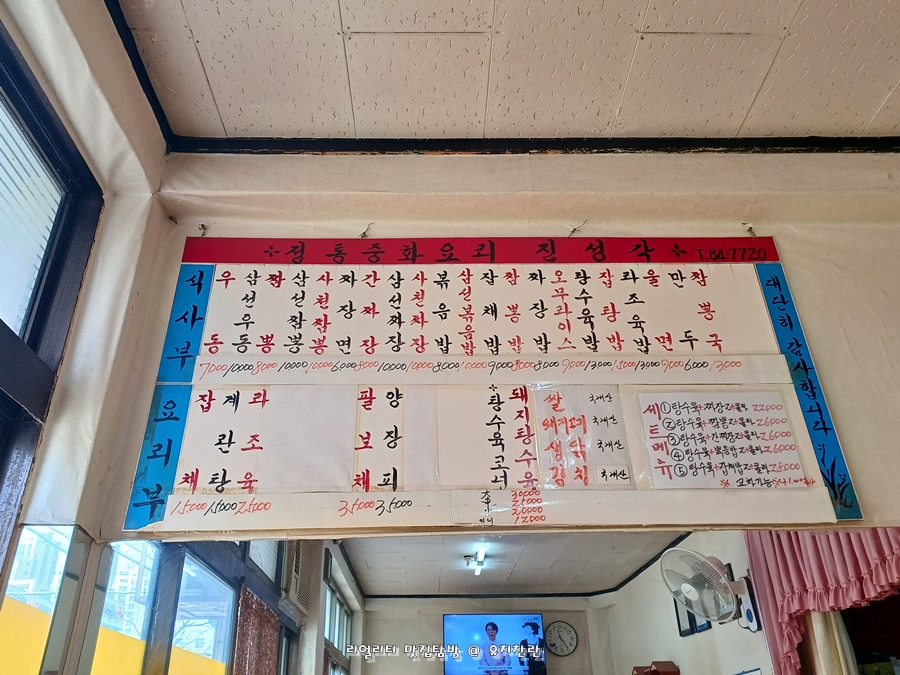 정통중화요리 진성각 T.84-7720
식사부
우동
삼선우동
짬뽕
삼선짬뽕
사천짬뽕
짜장면
간짜장
삼선짜장
사천짜장
볶음밥
삼선볶음밥
잡채밥
짬뽕밥
짜장밥
오무라이스
탕수육밥
잡탕밥
라조육밥
울면
만두
짬뽕국
7000 10000 8000 10000 10000 6000 8000 10000 10000 8000 10000 9000 8000 8000 9000 13000 15000 13000 9000 6000 13000
대단히 감사합니다
요리부
잡채
계란탕
라조육
팔보채
양장피
탕수육
돼지탕수육
15000 15000 25000 35000 35000
30000
25000
20000
12000
쌀 국내산
돼지고기 국내산
생닭 국내산
김치 국내산
세트메뉴
①탕수육+짜장2+콜라 22000
②탕수육+짬뽕2+콜라 26000
③탕수육+간짜장2+콜라 26000
④탕수육+볶음밥2+콜라 26000
⑤탕수육+잡채밥2+콜라 28000
리얼리티 맛집탐방 @ 유치찬란